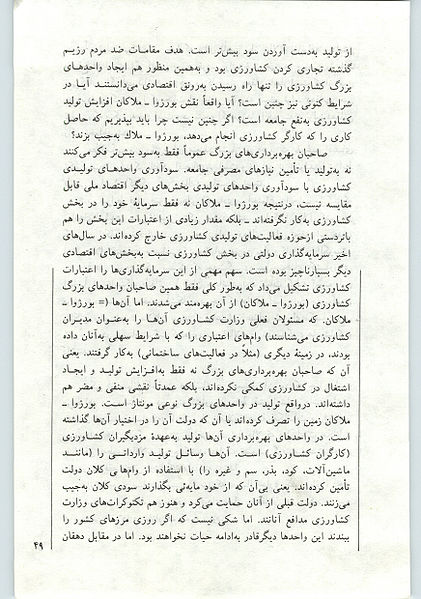 از تولید به‌دست آوردن سود بیش‌تر است. هدف مقامات ضد مردم رژیم
گذشته تجاری کردن کشاورزی بود و به‌همین منظور هم ایجاد واحدهای
بزرگ کشاورزی را تنها راه رسیدن به‌رونق اقتصادی می‌دانستند آیا در
شرایط کنونی نیز چنین است؟ آیا واقعاً نقش بورژوا ـ ملاکان افزایش تولید
کشاورزی به‌نفع جامعه است؟ اگر چنین نیست چرا باید بپذیریم که حاصل
کاری را که کارگر کشاورزی انجام می‌دهد، بورژوا ـ ملاك به‌جیب بزند؟
صاحبان بهره‌برداری‌های بزرگ عموماً فقط به‌سود بیش‌تر فکر می‌کنند
نه به‌تولید یا تأمین نیازهای مصرفی جامعه. سودآوری واحدهای تولیدی
کشاورزی با سودآوری واحدهای تولیدی بخش‌های دیگر اقتصاد ملی قابل
مقایسه نیست، درنتیجه بورژوا ـ ملاکان نه فقط سرمایهٔ خود را در بخش
کشاورزی به‌کار نگرفته‌اند ـ بلکه مقدار زیادی از اعتبارات این بخش را هم
باتردستی ازحوزه فعالیت‌های تولیدی کشاورزی خارج کرده‌اند. در سال‌های
اخیر سرمایه‌گذاری دولتی در بخش کشاورزی نسبت به‌بخش‌های اقتصادی
دیگر بسیارناچیز بوده است. سهم مهمی از این سرمایه‌گذاری‌ها را اعتبارات
کشاورزی تشکیل می‌داد که به‌طور کلی فقط همین صاحبان واحدهای بزرگ
کشاورزی (بورژوا ـ ملاکان) از آن بهره‌مند می‌شدند. اما آن‌ها (= بورژوا ـ
ملاکان، که مسئولان فعلی وزارت کشاورزی آن‌ها را به‌عنوان مدیران
کشاورزی می‌شناسند) وام‌های اعتباری را که با شرایط سهلی به‌آنان داده
بودند، در زمینهٔ دیگری (مثلاً در فعالیت‌های ساختمانی) به‌کار گرفتند. یعنی
آن که صاحبان بهره‌برداری‌های بزرگ نه فقط به‌افزایش تولید و ایجاد
اشتغال در کشاورزی کمکی نکرده‌اند، بلکه عمدتاً نقشی منفی و مضر هم
داشته‌اند. درواقع تولید در واحدهای بزرگ نوعی مونتاژ است. بورژوا ـ
ملاکان زمین را تصرف کرده‌اند یا آن که دولت آن را در اختیار آن‌ها گذاشته
است. در واحدهای بهره‌برداری آن‌ها تولید به‌عهدهٔ مزدبگیران کشاورزی
(کارگران کشاورزی) است. آن‌ها وسائل تولید وارداتی را (مانند
ماشین‌آلات، کود، بذر، سم و غیره را) با استفاده از وام‌های کلان دولت
تأمین کرده‌اند. یعنی بی‌آن که از خود مایه‌ئی بگذارند سودی کلان به‌جیب
می‌زنند. دولت قبلی از آنان حمایت می‌کرد و هنوز هم تکنوکرات‌های وزارت
کشاورزی مدافع آنانند. اما شکی نیست که اگر روزی مرزهای کشور را
ببندند این واحدها دیگرقادر به‌ادامه حیات نخواهند بود. اما در مقابل دهقان
۴۹